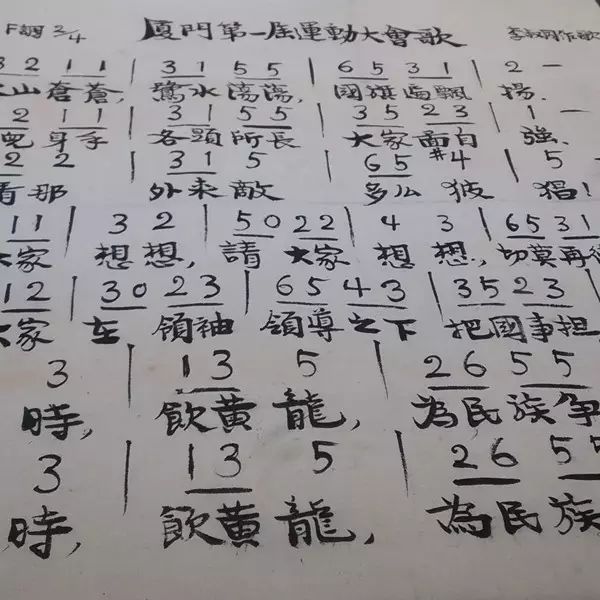 F調 3/4 廈門第一屆運動大會歌 李叔同作歌
3 2 1 1 | 3 1 5 5 | 6 5 3 1 | 2 —
山蒼蒼, 鷺水蕩蕩, 國旗遍飄 揚.
2 1 1 | 3 1 5 5 | 3 5 2 3 | 1 —
身手 各顯所長 大家面自 強.
2 2 | 3 1 5 | 6 5 #4 | 5 —
看那 外來敵 多么 披 猖!
1 1 | 3 2 | 5 0 2 2 | 4 3 | 6 5 3 1
大家 想想, 請 大家 想想, 切莫再
1 2 | 3 0 2 3 | 6 5 4 3 | 3 5 2 3
大家 在 領袖 領導之下 把國事担
3 | 1 3 5 | 2 6 5 5
時, 飲黃龍, 為民族爭
3 | 1 3 5 | 2 6 5 5
時, 飲黃龍, 為民族